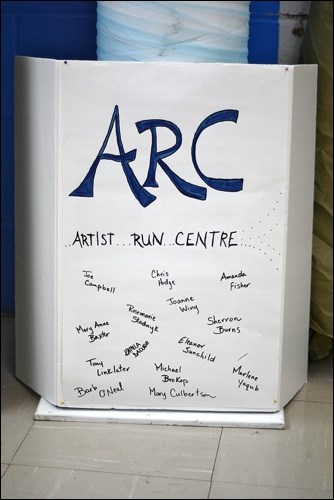 ARC
ARTIST...RUN...CENTRE
Joe
Campbell
Chris
Hodge
Amanda
Fisher
Rosemarie
Stadnyk
Joanne
Wing
Sherron
Burns
Mary Anne
Baxter
Eleanor
Sunchild
Tony
Linklater
Michael
BroKop
Marlene
Yaqub
Barb O'Neal
Mary Culbertson